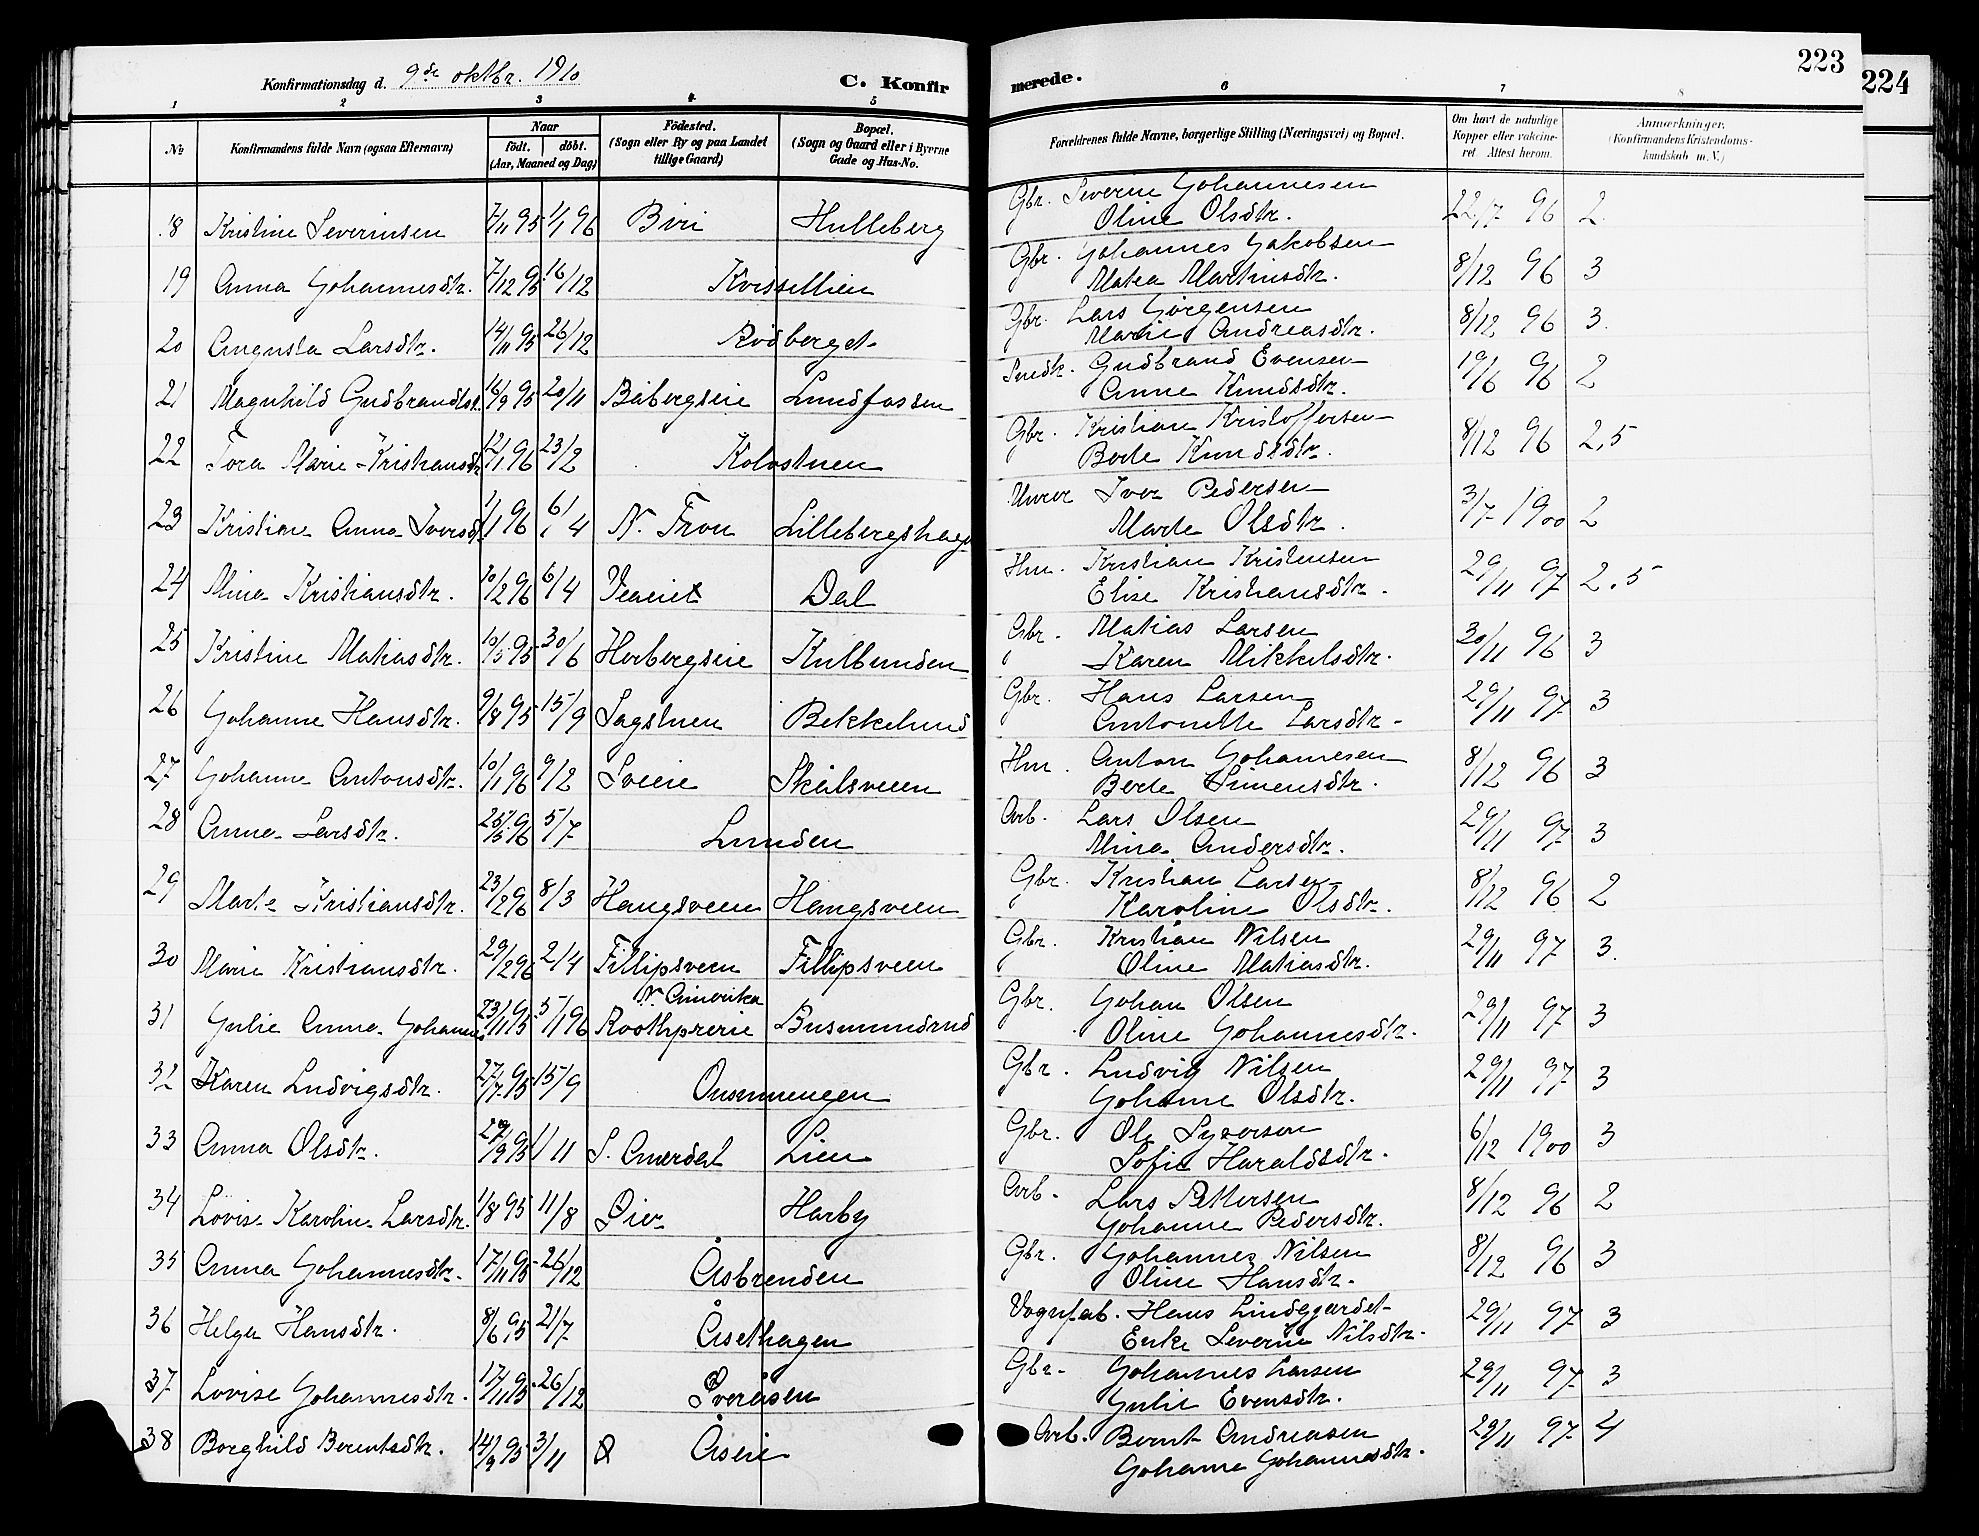 223
224
Konfirmationsdag d. 9de oktbr. 1910
C. Konfirmerede.
1 2 3 4 5 6 7 8
No
Konfirmandens fulde Navn (ogsaa Efternavn)
Naar
födt. döbt.
(Aar, Maaned og Dag)
Födested.
(Sogn eller By og paa Landet
tillige Gaard)
Bopæl.
(Sogn og Gaard eller i Byerne
Gade og Hus-No.
Forældrenes fulde Navne, borgerlige Stilling (Næringsvei) og Bopæl.
Om havt de naturlige
Kopper eller vakcineret
Attest herom.
Anmærkninger.
(Konfirmandens Kristendomskundskab
m. V.)
18 Kristine Severinsen 7/11 95 1/1 96 Biri Hulleberg Gbr. Severin Johannesen
Oline Olsdtr. 22/7 96 2.
19 Anna Johannesdtr. 7/12 95 16/12 Kvissellien Gbr. Johannes Jakobsen
Matea Martinsdtr. 8/12 96 3
20 Augusta Larsdtr. 14/11 95 26/12 Rödberget Gbr. Lars Jørgensen
Marie Andreasdtr. 8/12 96 3.
21 Magnhild Gudbrandsd. 16/9 95 20/11 Båbergseie Lundfossen Snedk. Gudbrand Evensen
Anne Knudsdtr. 19/6 96 2
22 Tora Marie Kristiansdtr 12/1 96 23/2 Kolostuen Gbr. Kristian Kristoffersen
Berte Knudsdtr. 8/12 96 2,5
23 Kristine Anna Iversdt. 1/1 96 6/4 N. Fron Lillebergshage Murer Iver Pedersen
Marte Olsdtr. 3/7 1900 2
24 Mina Kristiansdtr. 10/2 96 6/4 Dal Hm. Kristian Kristensen
Elise Kristiansdtr. 29/11 97 2.5
25 Kristine Matiasdtr. 10/5 95 30/6 Herbergseie Kulbunden Gbr. Matias Larsen
Karen Mikkelsdtr. 30/11 96 3
26 Johanne Hansdtr. 9/8 95 15/9 Sagstuen Bekkelund Gbr. Hans Larsen
Antonette Larsdtr. 29/11 97 3
27 Johanne Antonsdtr. 10/1 96 9/2 Sveie Skålsveen Hm. Anton Johannesen
Berte Simensdtr. 8/12 96 3
28 Anna Larsdtr. 25/5 96 5/7 Lunden Arb. Lars Olsen
Mina Andersdtr. 29/11 97 3
29 Marte Kristiansdtr. 23/2 96 8/3 Haugsveen Haugsveen Gbr. Kristian Larsen
Karoline Olsdtr. 8/12 96 2
30 Marie Kristiansdtr. 29/2 96 2/4 Fillipsveen Fillipsveen Gbr. Kristian Nilsen
Oline Matiasdtr. 29/11 97 3.
31 Julie Anna Johannes 23/11 95 5/11 96 N. Amerika
Roothprerie Busmundrud Gbr. Johan Olsen
Oline Johannesdtr. 29/11 97 3
32 Karen Ludvigsdtr. 27/7 95 15/9 Onsumengen Gbr. Ludvig Nilsen
Johanne Olsdtr. 29/11 97 3
33 Anna Olsdtr. 27/9 95 1/11 S. Omerdal Lien Gbr. Ole Syversen
Sofie Haraldsdtr. 6/12 1900 3
34 Lovise Karoline Larsdtr. 1/8 95 11/8 Øier Harby Arb. Lars Pettersen
Johanne Pedersdtr. 8/12 96 2
35 Anna Johannesdtr. 17/11 95 26/12 Åsbrenden Gbr. Johannes Nilsen
Oline Hansdtr. 8/12 96 3
36 Helga Hansdtr. 8/6 95 21/7 Åsethagen Vognfab. Hans Lindgjærdet
Enke Severine Nilsdtr. 29/11 97 3
37 Lovise Johannesdtr. 17/11 95 26/12 Sveråsen Gbr. Johannes Larsen
Julie Evensdtr. 29/11 97 3
38 Borghild Berntsdtr. 14/9 95 3/11 Åseie Arb. Bernt Andreasen
Johanne Johannesdtr. 29/11 97 4